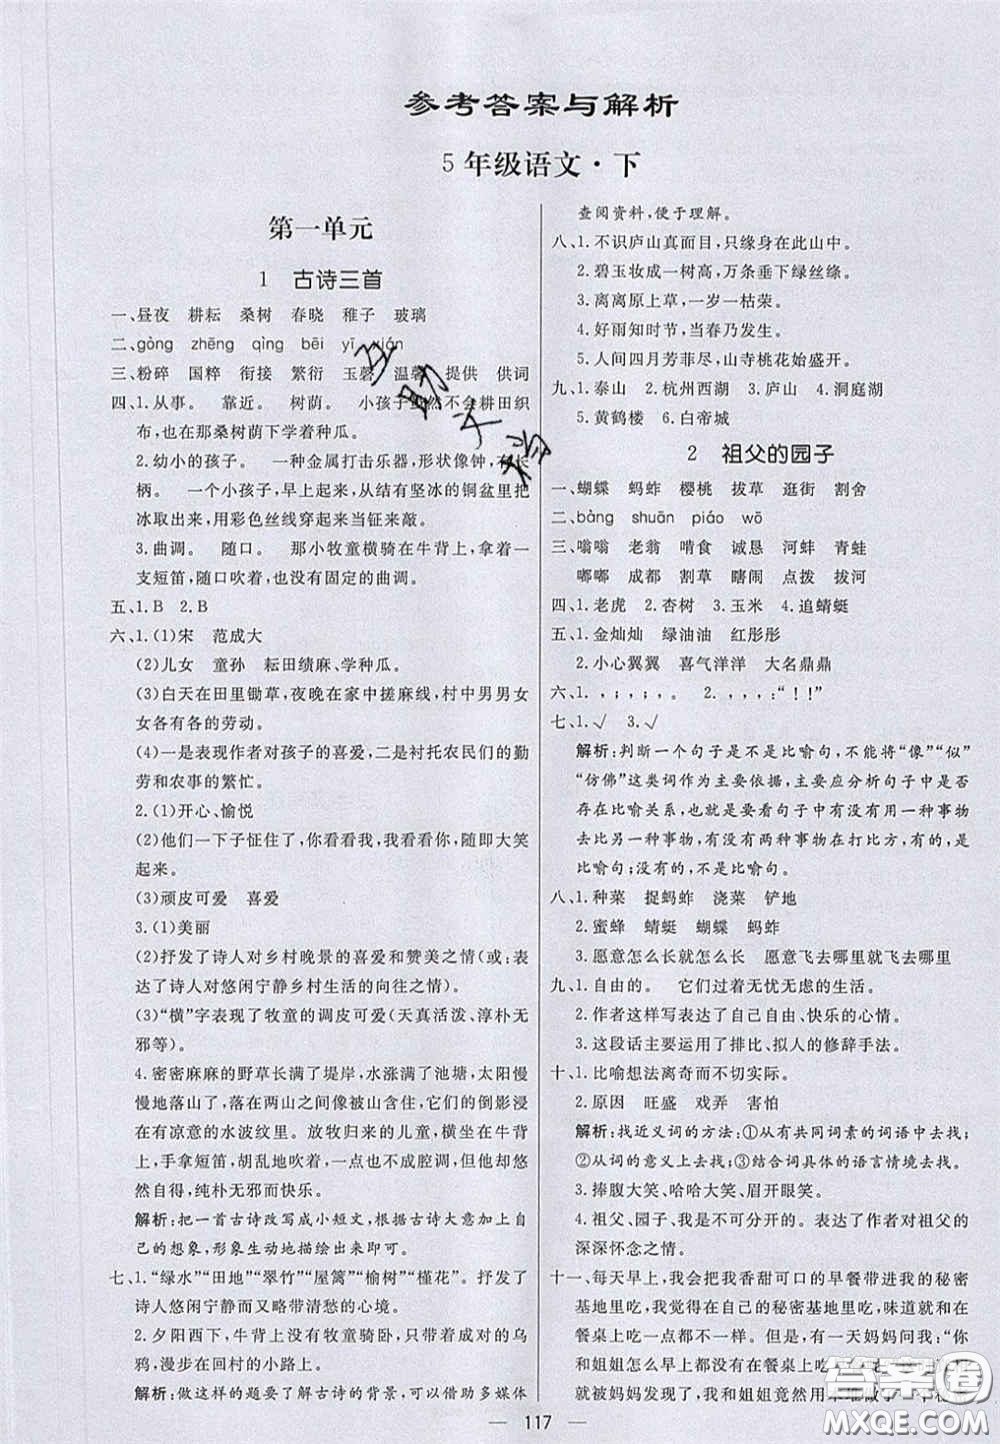 参考答案与解析
5年级语文·下
第一单元
1 古诗三首
一、昼夜 耕耘 桑树 春晓 稚子 玻璃
二、gòng zhēng qìng bēi yī
三、粉碎 国粹 衔接 繁衍 玉磬 温馨 提供 供词
四、1.从事。 靠近。 树荫。 小孩子虽然不会耕田织
布,也在那桑树荫下学着种瓜。
2.幼小的孩子。 一种金属打击乐器,形状像钟,有长
柄。 一个小孩子,早上起来,从结有坚冰的铜盆里把
冰取出来,用彩色丝线穿起来当钲来敲。
3.曲调。 随口。 那小牧童横骑在牛背上,拿着一
支短笛,随口吹着,也没有固定的曲调。
五、1.B 2.B
六、1.(1)宋 范成大
(2)儿女 童孙 耘田绩麻、学种瓜。
(3)白天在田里锄草,夜晚在家中搓麻线,村中男男女
女各有各的劳动。
(4)一是表现作者对孩子的喜爱,二是衬托农民们的勤
劳和农事的繁忙。
2.(1)开心、愉悦
(2)他们一下子怔住了,你看看我,我看看你,随即大笑
起来。
(3)顽皮可爱 喜爱
3.(1)美丽
(2)抒发了诗人对乡村晚景的喜爱和赞美之情(或:表
达了诗人对悠闲宁静乡村生活的向往之情)。
(3)“横”字表现了牧童的调皮可爱(天真活泼、淳朴无
邪等)。
4.密密麻麻的野草长满了堤岸,水涨满了池塘,太阳慢
慢地落山了,落在两山之间像被山咬住了,它们的倒影浸
在有凉意的水波纹里。放牧归来的儿童,横坐在牛背
上,手拿短笛,胡乱地吹着,一点也不成腔调,但是怡
然自得,纯朴无邪而快乐。
解析:把一首古诗改写成小短文,根据古诗大意加上自
己的想象,形象生动地描绘出来即可。
七、1.“绿水”“田地”“翠竹”“屋篱”“榆树”“槿花”。抒发了
诗人悠闲宁静而又略带清愁的心境。
2.夕阳西下,牛背上没有牧童骑卧,只带着成对的乌
鸦,漫步在回村的小路上。
解析:做这样的题要了解古诗的背景,可以借助多媒体
查阅资料,便于理解。
八、1.不识庐山真面目,只缘身在此山中。
2.碧玉妆成一树高,万条垂下绿丝绦。
3.离离原上草,一岁一枯荣。
4.好雨知时节,当春乃发生。
5.人间四月芳菲尽,山寺桃花始盛开。
九、1.泰山 2.杭州西湖 3.庐山 4.洞庭湖
5.黄鹤楼 6.白帝城
2 祖父的园子
一、蝴蝶 蚂蚱 樱桃 拔草 逛街 割舍
二、bàng shuān piáo wō
三、嗡嗡 老翁 啃食 诚恳 河蚌 青蛙
嘟嘟 成都 割草 瞎闹 点拨 拔河
四、1.老虎 2.杏树 3.玉米 4.追蜻蜓
五、1.金灿灿 绿油油 红彤彤
2.小心翼翼 喜气洋洋 大名鼎鼎
六、1.,;,;,。 2.,,,:“!!”
七、1.√ 3.√
解析:判断一个句子是不是比喻句,不能将“像”“似”
“仿佛”这类词作为主要依据,主要应分析句子中是否
存在比喻关系,也就是要看句子中有没有用一种事物
去比另一种事物,有没有两种事物在打比方,有的,就
是比喻句;没有的,不是比喻句。
八、1.种菜 捉蚂蚱 浇菜 铲地
2.蜜蜂 蜻蜓 蝴蝶 蚂蚱
3.愿意怎么长就怎么长 愿意飞去哪里就飞去哪里
九、1.自由的。 它们过着无忧无虑的生活。
2.作者这样写表达了自己自由、快乐的心情。
3.这段话主要运用了排比、拟人的修辞手法。
十、1.比喻想法离奇而不切实际。
2.原因 旺盛 戏弄 害怕
解析:找近义词的方法:①从有共同词素的词语中去找;
②从词的意义上去找;③结合词具体的语言情境去找。
3.捧腹大笑、哈哈大笑、眉开眼笑。
4.祖父、园子、我是不可分开的。表达了作者对祖父的
深深怀念之情。
十一、每天早上,我会把香甜可口的早餐带进我的秘密
基地里吃,我觉得在自己的秘密基地里吃,味道就和在
餐桌上吃的都不一样。但是,有一天妈妈问我:“你
和姐姐怎么早上都没有在餐桌上吃
就被妈妈发现了,我和姐姐竟然用
117
答案圈
MXQE.COM
互助文档